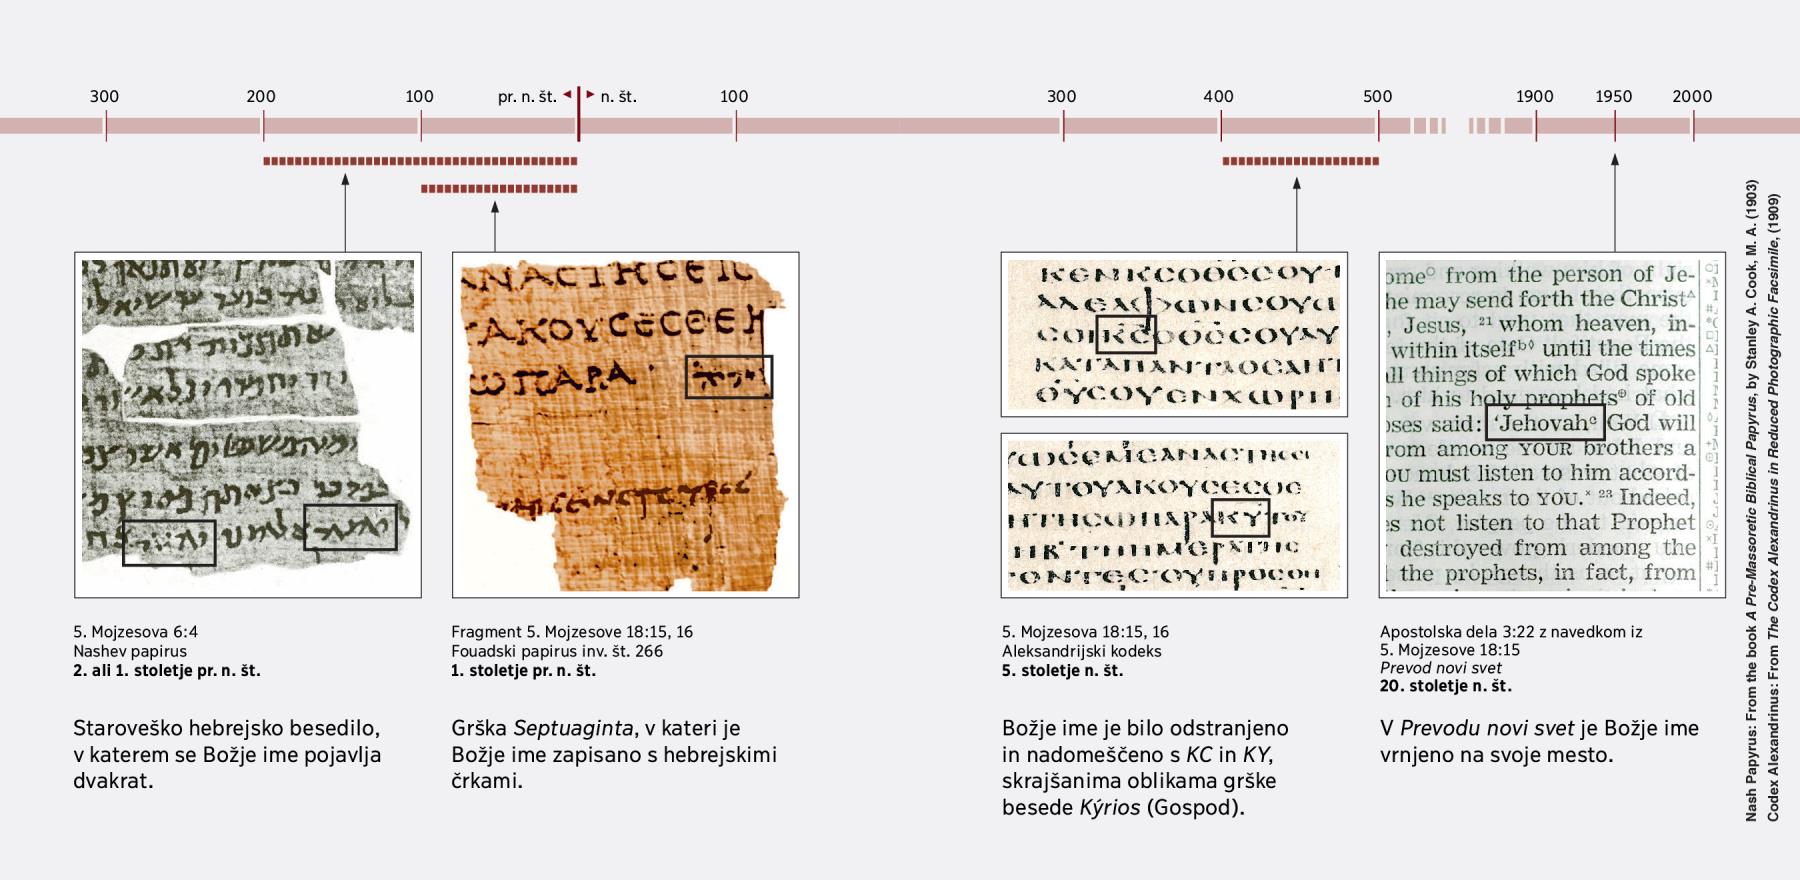 300
200
100
pr. n. št.
n. št.
100
300
400
500
1900
1950
2000
ΑΝΑCΤΗCΕΙC
ΑΚΟΥCΕCΘΕ
ΩΠΑΡΑ יהוה
ΚΕΝΚCΟΘCCΟΥ
ΑΔΕΛΦΩΝCΟΥ
CΟΙΚCΟΘCCΟΥ
ΚΑΤΑΠΑΝΤΑΟCΑ
CΕΜΕΑΝΑCΤΗ
ΑΥΤΟΥΑΚΟΥCΕCΘΕ
ΗΤΗCΩΠΑΡΑΚΥΤΟΥ
ΟΝΤΕCΟΥΠΡΟCΘΗ
ome° from the person of Je-
he may send forth the Christ
, Jesus, 21 whom heaven, in-
within itself until the times
all things of which God spoke
of his holy prophets of old
oses said: ‘Jehovah God will
rom among YOUR brothers a
ou must listen to him accord-
s he speaks to YOU. 23 Indeed,
es not listen to that Prophet
destroyed from among the
the prophets, in fact, from
5. Mojzesova 6:4
Nashev papirus
2. ali 1. stoletje pr. n. št.
Staroveško hebrejsko besedilo,
v katerem se Božje ime pojavlja
dvakrat.
Fragment 5. Mojzesove 18:15, 16
Fouadski papirus inv. št. 266
1. stoletje pr. n. št.
Grška Septuaginta, v kateri je
Božje ime zapisano s hebrejskimi
črkami.
5. Mojzesova 18:15, 16
Aleksandrijski kodeks
5. stoletje n. št.
Božje ime je bilo odstranjeno
in nadomeščeno s KC in KY,
skrajšanima oblikama grške
besede Kýrios (Gospod).
Apostolska dela 3:22 z navedkom iz
5. Mojzesove 18:15
Prevod novi svet
20. stoletje n. št.
V Prevodu novi svet je Božje ime
vrnjeno na svoje mesto.
Nash Papyrus: From the book A Pre-Massoretic Biblical Papyrus, by Stanley A. Cook, M. A. (1903)
Codex Alexandrinus: From The Codex Alexandrinus in Reduced Photographic Facsimile, (1909)